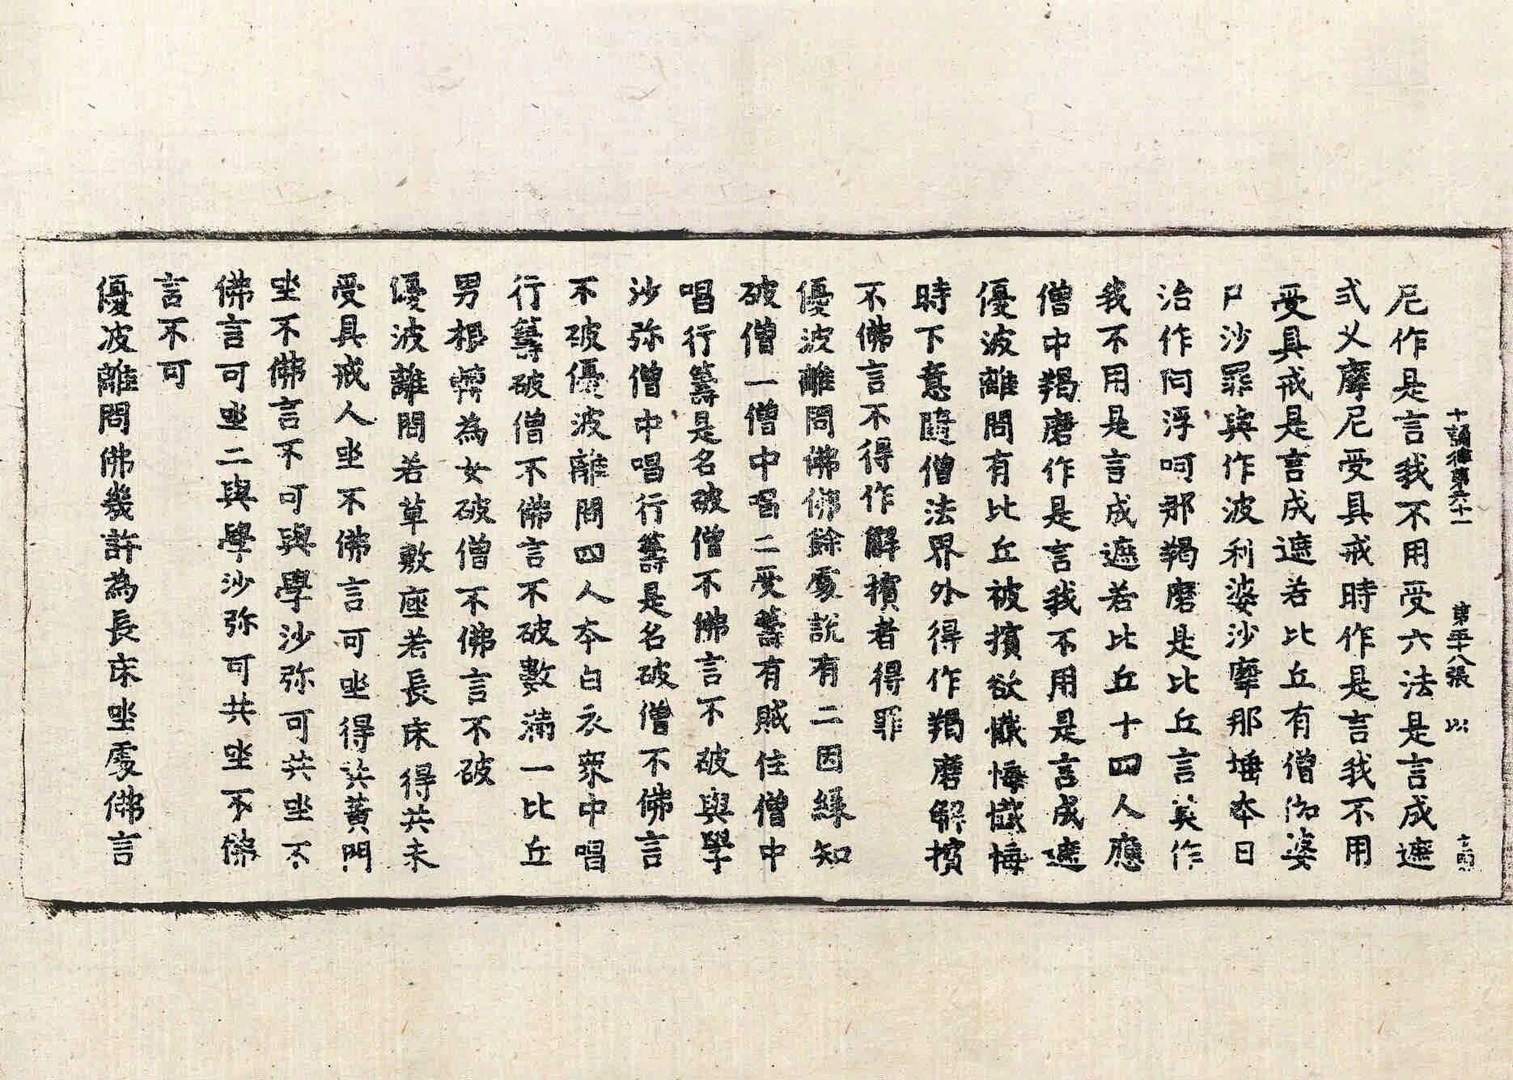 十誦律第六十一 第二十八張 以
尼作是言我不用受六法是言成遮
式叉摩尼受具戒時作是言我不用
受具戒是言成遮若比丘有僧伽婆
尸沙罪與作波利婆沙摩那埵本日
治作阿浮呵那羯磨是比丘言莫作
我不用是言成遮若比丘十四人應
僧中羯磨作是言我不用是言成遮
優波離問有比丘被擯欲懺悔懺悔
時下意隨僧法界外得作羯磨解擯
不佛言不得作解擯者得罪
優波離問佛佛餘處說有二因緣知
破僧一僧中唱二受籌有賊住僧中
唱行籌是名破僧不佛言不破與學
沙弥僧中唱行籌是名破僧不佛言
不破優波離問四人夲白衣衆中唱
行籌破僧不佛言不破數滿一比丘
男根轉為女破僧不佛言不破
優波離問若草敷座若長床得共未
受具戒人坐不佛言可坐得共黃門
坐不佛言不可與學沙弥可共坐不
佛言可坐二與學沙弥可共坐不佛
言不可
優波離問佛幾許為長床坐處佛言